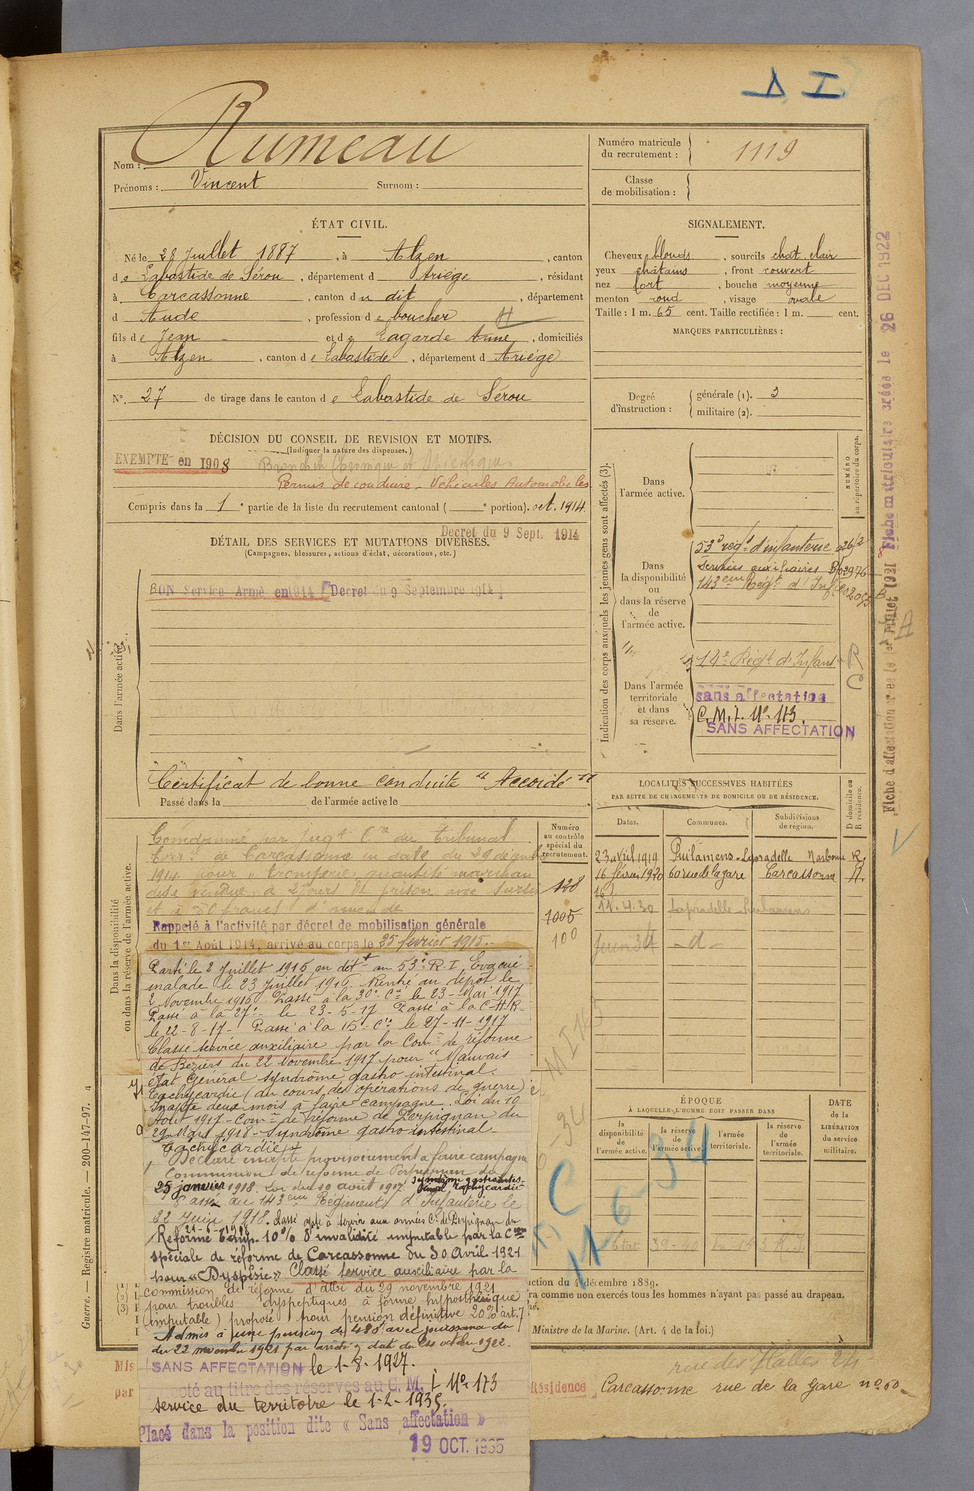 Δ I
Rumeau
Nom :
Prénoms : Vincent Surnom :
Numéro matricule du recrutement : 1119
Classe de mobilisation :
ÉTAT CIVIL.
Né le 28 Juillet 1887, à Alzen, canton
d e Labastide de Sérou, département d Ariège, résidant
à Carcassonne, canton d u dit, département
d Aude, profession d e boucher
fils d e Jean et d e Lagarde Anne, domiciliés
à Alzen, canton d e Labastide, département d Ariège
N° 27 de tirage dans le canton d e Labastide de Sérou
SIGNALEMENT.
Cheveux blonds, sourcils chat. clair
yeux châtains, front couvert
nez fort, bouche moyenne
menton rond, visage ovale
Taille : 1 m. 65 cent. Taille rectifiée : 1 m. cent.
MARQUES PARTICULIÈRES :
Degré d'instruction : générale (1). 3
militaire (2).
DÉCISION DU CONSEIL DE REVISION ET MOTIFS.
(Indiquer la nature des dispenses.)
EXEMPTÉ en 1908
Permis de conduire - Véhicules Automobiles
Compris dans la 1 e partie de la liste du recrutement cantonal ( e portion). oct. 1914
Décret du 9 Sept. 1914
DÉTAIL DES SERVICES ET MUTATIONS DIVERSES.
(Campagnes, blessures, actions d'éclat, décorations, etc.)
BON Service Armé en 1914 Décret du 9 Septembre 1914
Dans l'armée active.
Certificat de bonne conduite "Accordé"
Passé dans la de l'armée active le
Indication des corps auxquels les jeunes gens sont affectés (3).
NUMÉRO au répertoire du corps.
Dans l'armée active.
Dans la disponibilité ou dans la réserve de l'armée active.
53e reg. d'infanterie
Services auxiliaires
143eme Régt d'Inf.
Dans l'armée territoriale et dans sa réserve.
Régt d'Infant
sans affectation
C. M. I. N° 173.
SANS AFFECTATION
LOCALITÉS SUCCESSIVES HABITÉES
PAR SUITE DE CHANGEMENTS DE DOMICILE OU DE RÉSIDENCE.
Dates. Communes. Subdivisions de région. D domicile ou R résidence.
23 avril 1919 Puilamens - Lapradelle Narbonne R.
16 février 1920 60 rue de la gare Carcassonne
11.4.30 Lapradelle Puilamens
Juin 34 - d -
Dans la disponibilité ou dans la réserve de l'armée active.
Numéro au contrôle spécial du recrutement.
128
1005
100
Condamné par Jugt du Tribunal
Corr. de Carcassonne en date du 29
1914 pour "tromperie, quantité marchan
dise vendue" à 2 jours de prison avec sursis
et à 50 francs d'amende
Rappelé à l'activité par décret de mobilisation générale
du 1er Août 1914, arrivé au corps le 25 février 1915.
Parti le 2 Juillet 1916 en dét. au 53e R.I. Evacué
malade le 23 Juillet 1916. Rentré au dépôt le
2 Novembre 1916. Passé à la 30e Cie le 23 Mai 1917
Passé à la 27e le 23-5-17 Passé à la C.H.R.
le 22-8-17- Passé à la 15e Cie le 27-11-1917
Classé service auxiliaire par la Com. de réforme
de Béziers du 22 novembre 1917 pour "Mauvais
état Général syndrôme gastro intestinal.
Tachycardie (au cours des opérations de guerre)
Inapte deux mois à faire campagne. Loi du 10
Août 1917 - Com. de réforme de Perpignan du
29 Mars 1918 - Syndrôme gastro intestinal -
Tachycardie
Déclaré inapte provisoirement à faire campagne
Commission de réforme de Perpignan du
25 janvier 1918 Loi du 10 août 1917
Passé au 143eme Régiments d'Infanterie le
22 Juin 1918. Classé apte à servir aux armées Cion de Perpignan du
Réformé temp. 10% d'invalidité imputable par la Cion
spéciale de réforme de Carcassonne du 30 Avril 1921
pour "Dyspepsie" Classé service auxiliaire par la
commission de réforme d'Albi du 29 novembre 1921
pour troubles dyspeptiques à forme hyposthénique
(imputable) proposé pour pension définitive 20% art. 7.
Admis à une pension de 480f avec jouissance du
du 22 novembre 1921 par arrêté en date du octobre 1922.
SANS AFFECTATION le 1-8-1927.
Affecté au titre des réserves au C. M. I. N° 173
service du territoire le 1-2-1935.
Placé dans la position dite « Sans affectation »
19 OCT. 1935
ÉPOQUE
À LAQUELLE L'HOMME DOIT PASSER DANS
DATE de la LIBÉRATION du service militaire.
la disponibilité de l'armée active.
la réserve de l'armée active.
l'armée territoriale.
la réserve de l'armée territoriale.
C
11-6-34
ction du 4 décembre 1889.
ra comme non exercés tous les hommes n'ayant pas passé au drapeau,
Ministre de la Marine. (Art. 4 de la loi.)
rue des Halles 24
Résidence Carcassonne rue de la Gare n° 60
Mis
par
Guerre. — Registre matricule. — 200-147-97. 4
Fiche matriculaire créée le 26 DEC 1922
Fiche d'affectation créée le 1er Juillet 1921